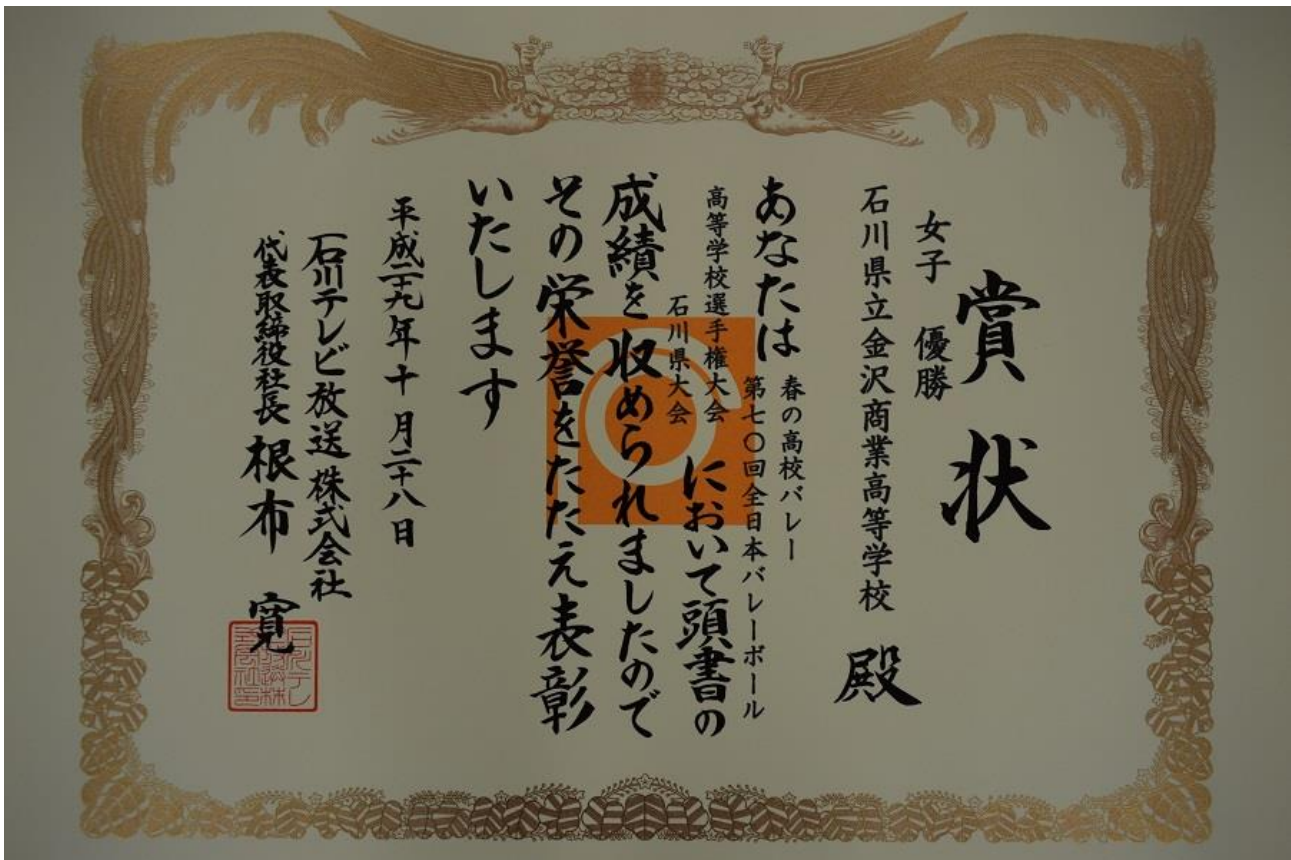 賞状
女子 優勝
石川県立金沢商業高等学校 殿
あなたは 春の高校バレー
第七〇回全日本バレーボール
高等学校選手権大会
石川県大会 において頭書の
成績を収められましたので
その栄誉をたたえ表彰
いたします
平成二十九年十月二十八日
石川テレビ放送株式会社
代表取締役社長 根布 寛